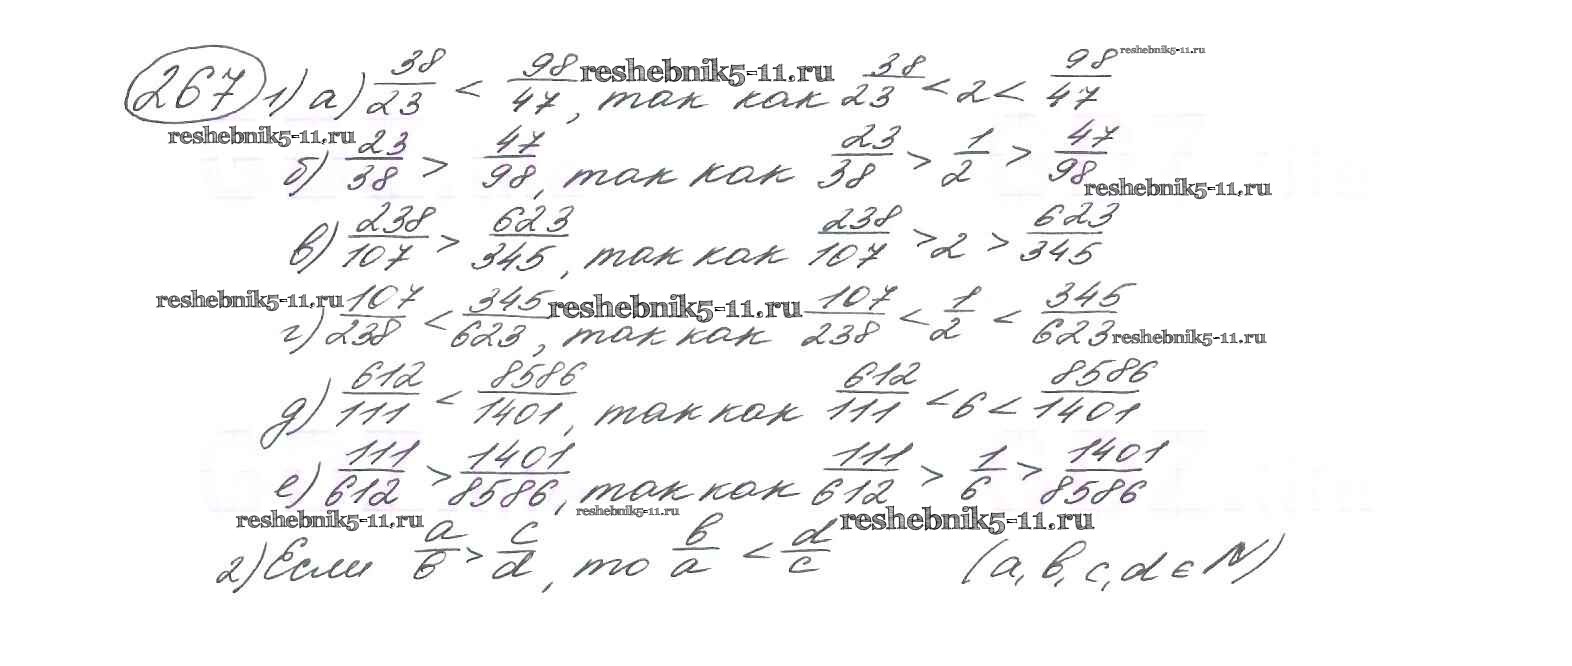 267 1) а) 38/23 < 98/47, так как 38/23 < 2 < 98/47
б) 23/38 > 47/98, так как 23/38 > 1/2 > 47/98
в) 238/107 > 623/345, так как 238/107 > 2 > 623/345
г) 107/238 < 345/623, так как 107/238 < 1/2 < 345/623
д) 612/111 < 8586/1401, так как 612/111 < 6 < 8586/1401
е) 111/612 > 1401/8586, так как 111/612 > 1/6 > 1401/8586
2) Если a/b > c/d, то b/a < d/c (a, b, c, d ∈ N)
reshebnik5-11.ru
reshebnik5-11.ru
reshebnik5-11.ru
reshebnik5-11.ru
reshebnik5-11.ru
reshebnik5-11.ru
reshebnik5-11.ru
reshebnik5-11.ru
reshebnik5-11.ru
reshebnik5-11.ru